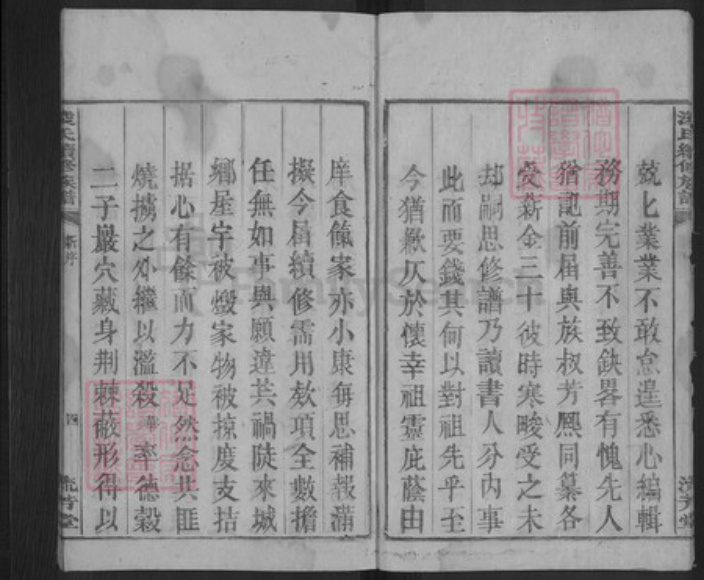 兢匕業業不敢怠遑悉心編輯
務期完善不致缺畧有愧先人
猶記前届與族叔芳熙同纂各
受薪金三十彼時寒畯受之未
却嗣思修譜乃讀書人分內事
此而要錢其何以對祖先乎至
今猶歉仄於懷幸祖靈庇蔭由
庠食餼家亦小康每思補報滿
擬今届續修需用欵項全數擔
任無如事與願違共禍陡來城
鄉屋宇被燬家物被掠度支拮
据心有餘而力不足然念共匪
燒擄之外繼以濫殺華率德穀
二子巖穴藏身荆棘蔽形得以
氏續修族譜
新序
四
流芳堂